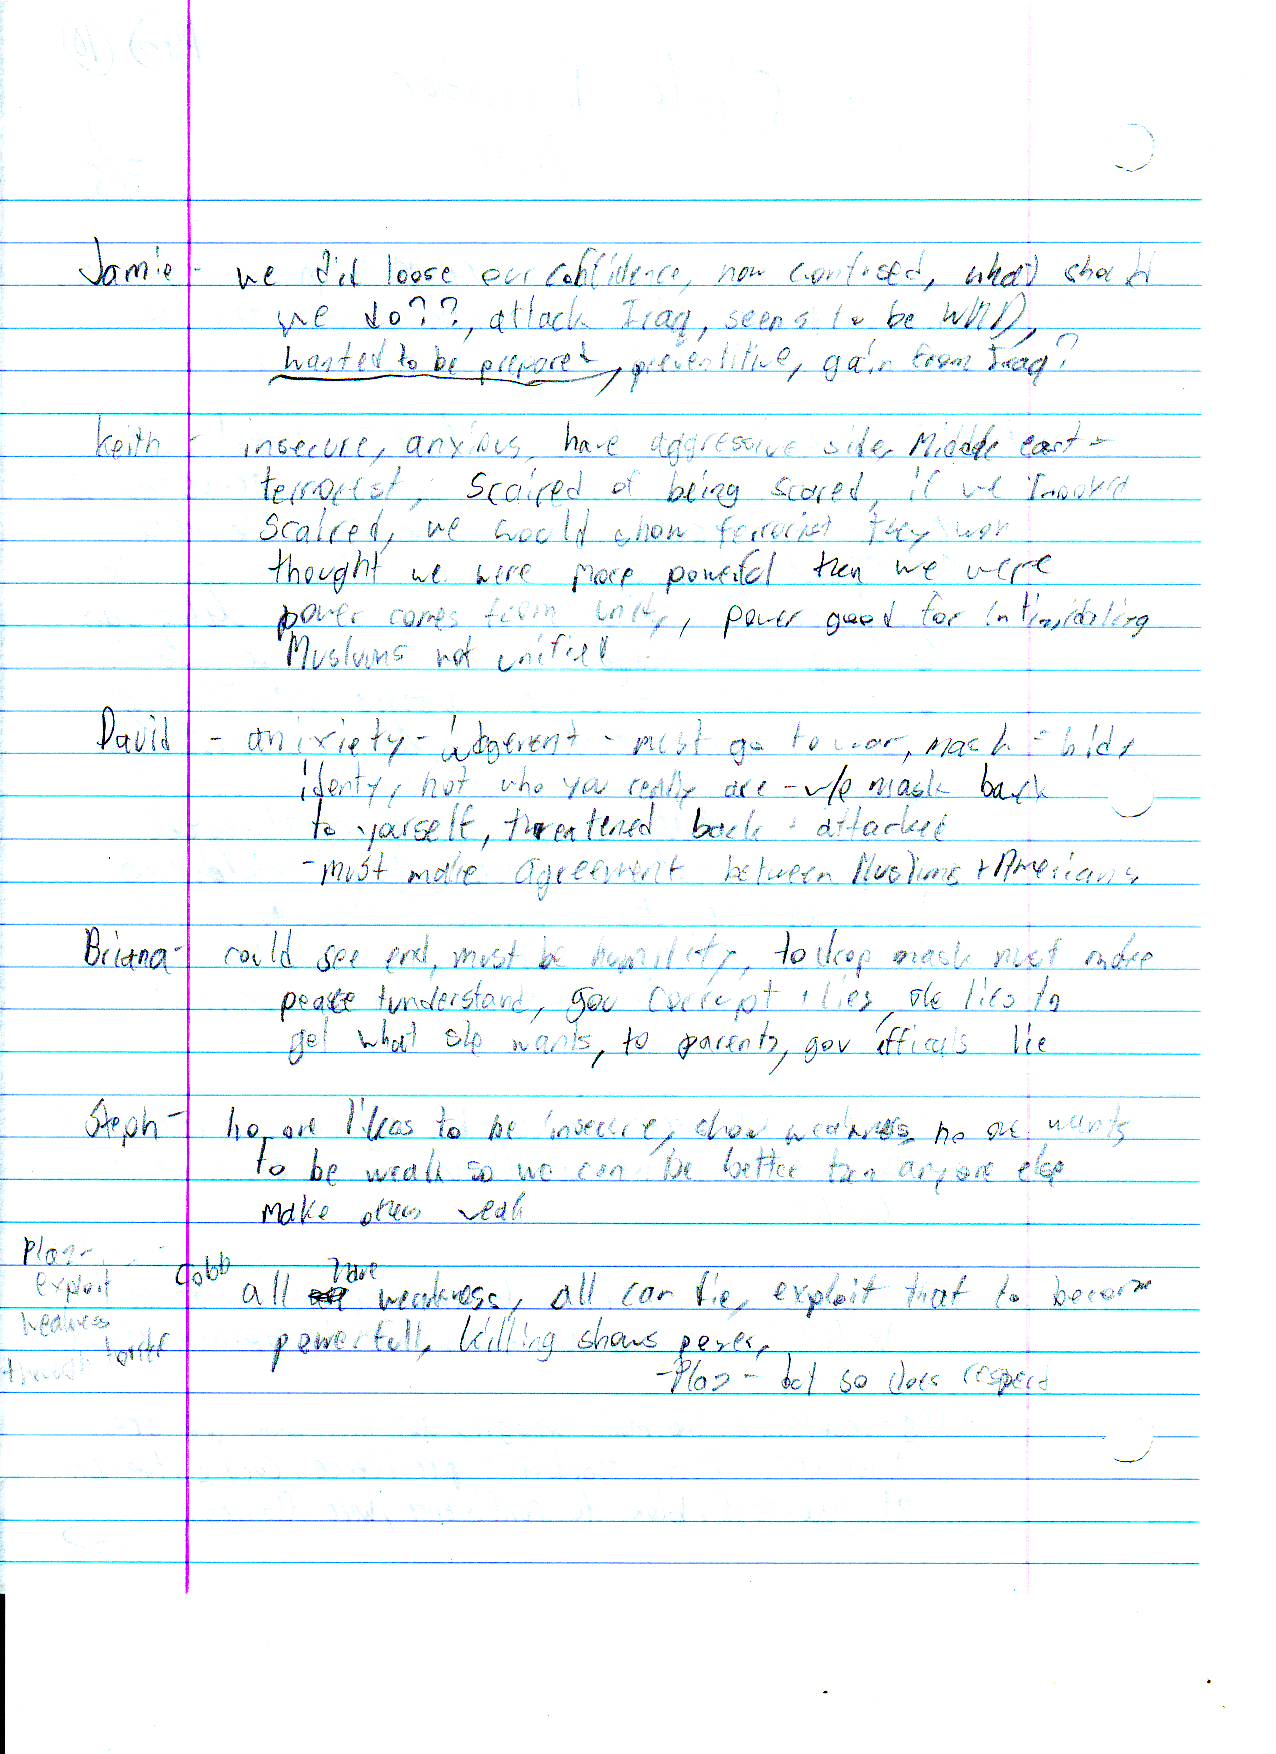 Jamie - we did loose our confidence, now confused, what should
we do??, attack Iraq, seems to be WMD,
wanted to be prepared, preventitive, gain from Iraq?
Keith - insecure, anxious, have aggressive side, Middle east -
terrorist, Scaired of being scared, if we looked
Scaired, we would show terrorist they won
thought we were more powerful then we were
power comes from unity, power good for intimidating
Muslums not unified
David - anixiety - judgement - must go to war, mask - hids
identy, not who you really are - w/o mask back
to yourself, threatened back + attacked
- must make agreement between Muslims + Americans
Briana - could see end, must be humility, to drop mask must make
peace + understand, gov corrupt + lies, she lies to
get what she wants, to parents, gov officals lie
Steph - no one likes to be insecure, show weakness no one wants
to be weak so we can be better then anyone else
make others weak
Cobb all have weakness, all can die, exploit that to become
powerfull, killing shows power,
- Plaz - but so does respect
Plaz -
exploit
weakness